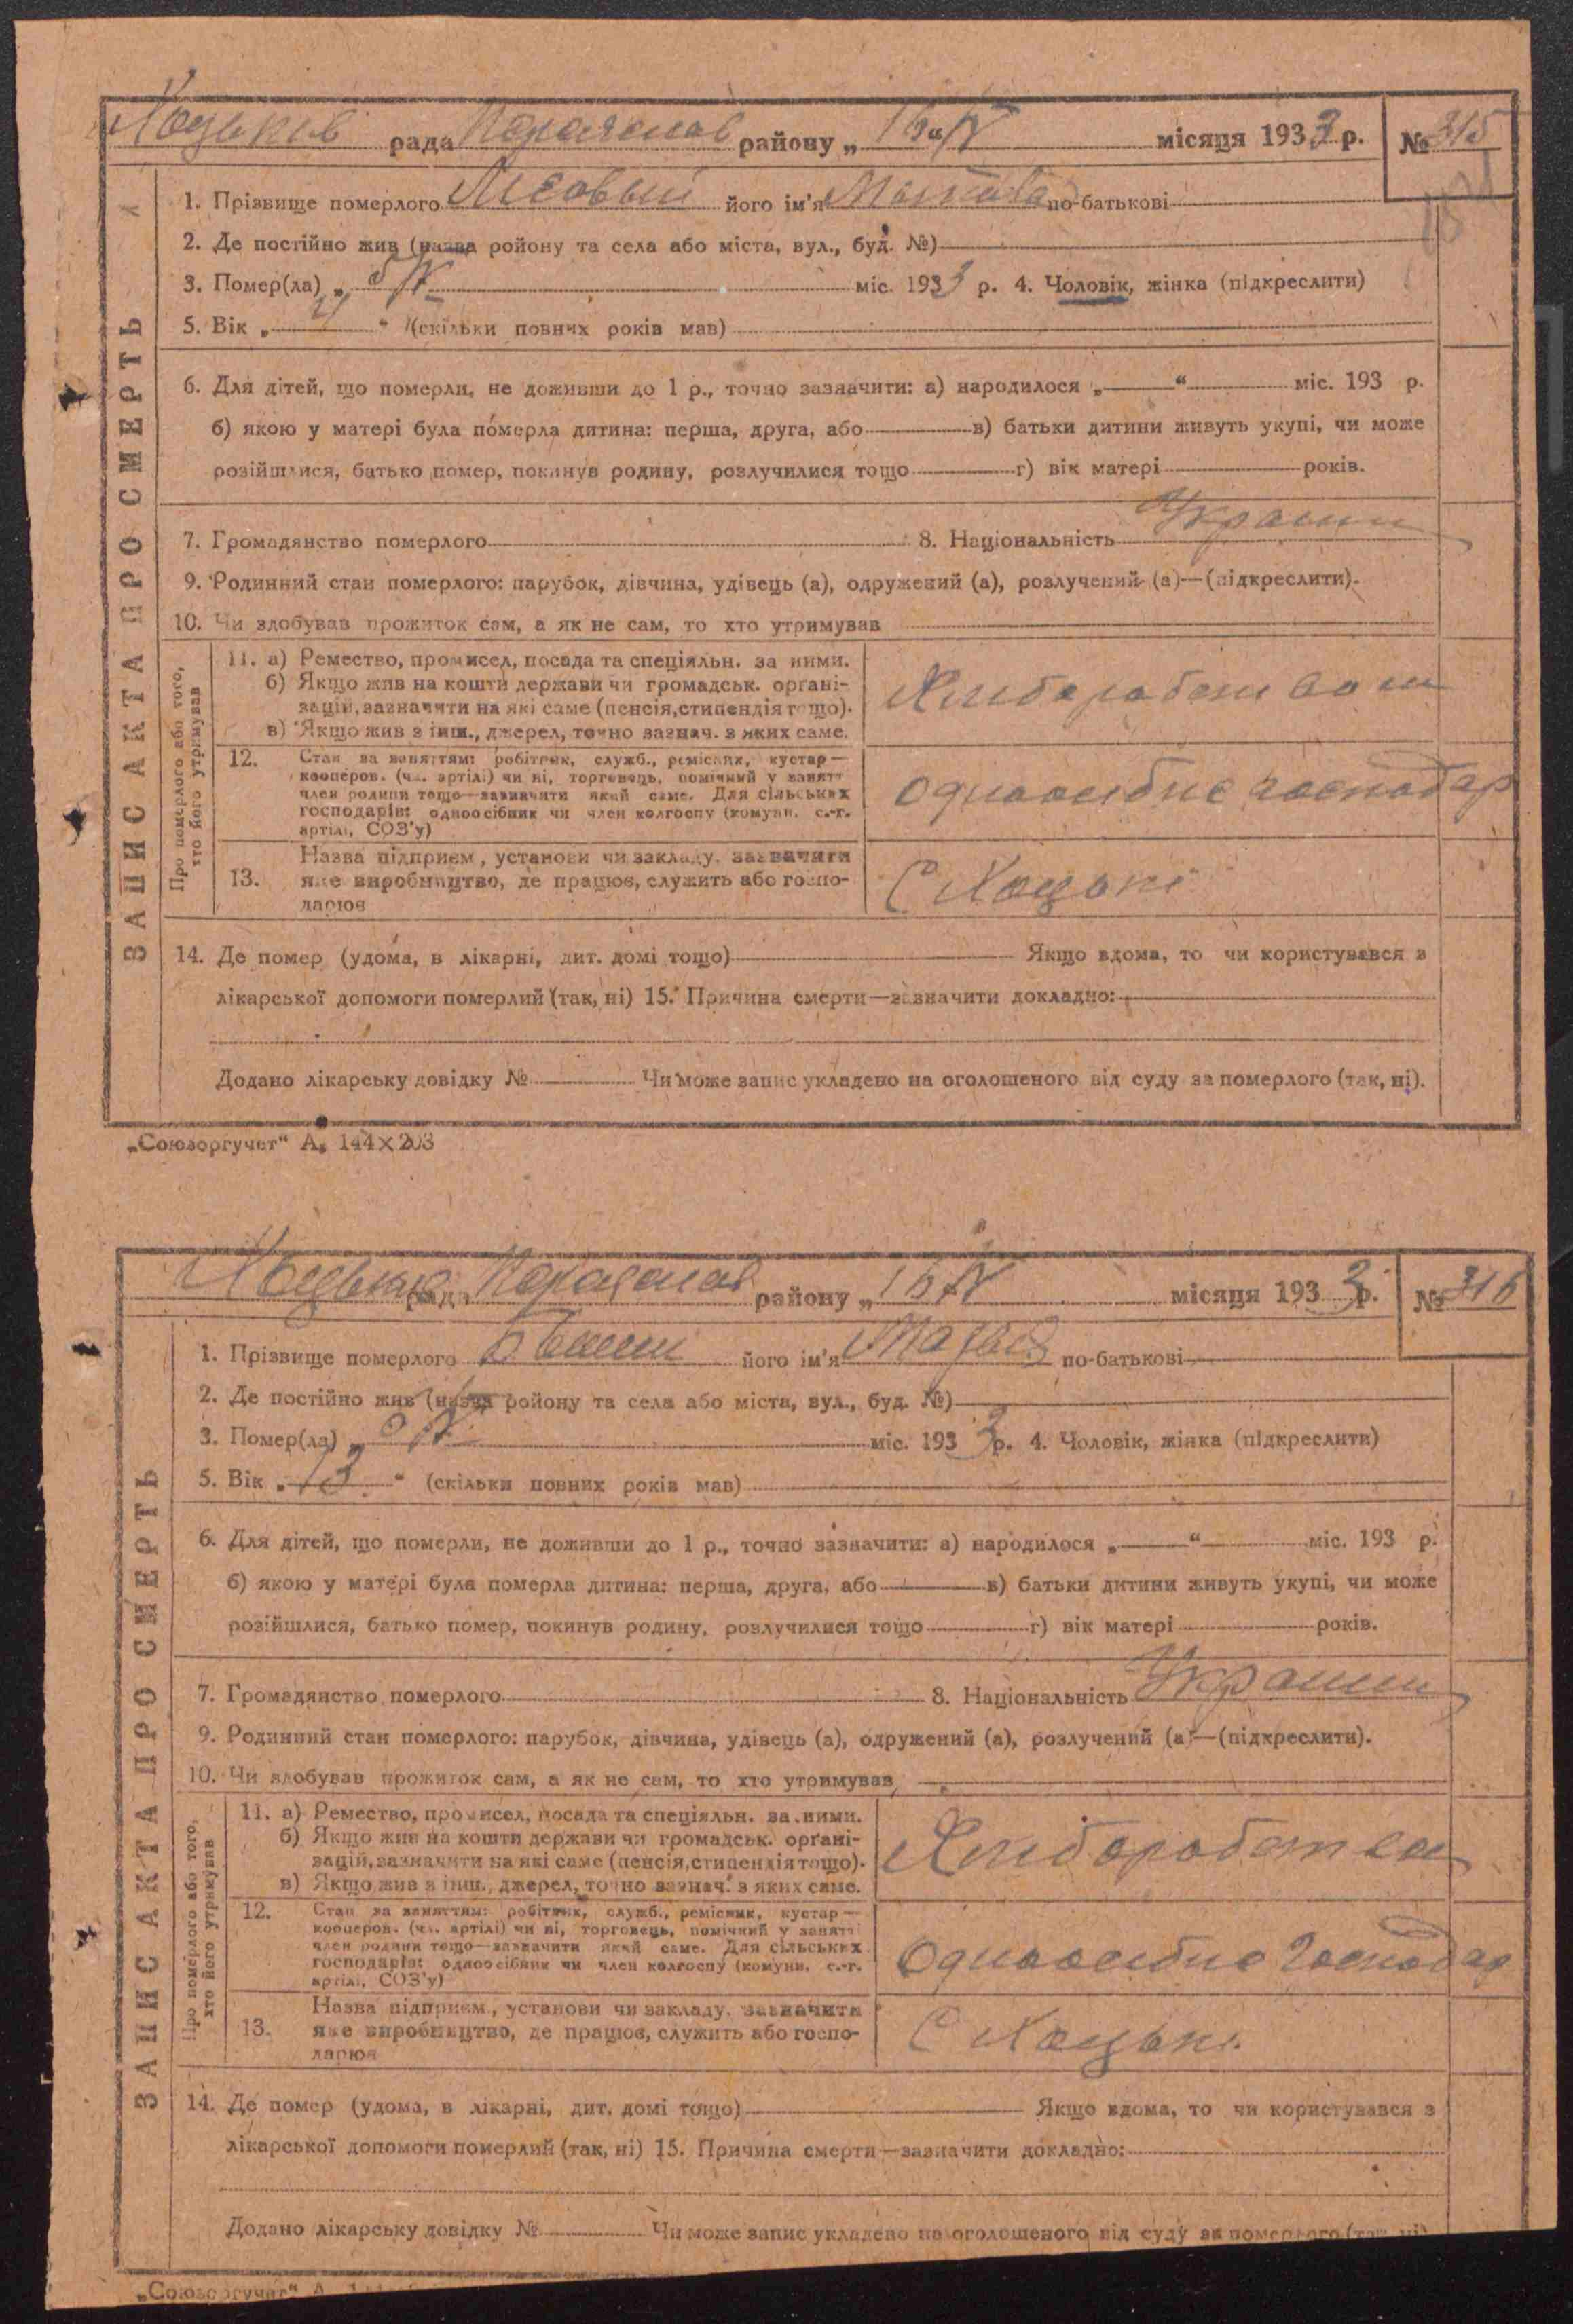 рада Пераяслав району „ 16 " IV місяця 1933 р. № 315
1. Прізвище померлого його ім'я по-батькові
2. Де постійно жив (назва ройону та села або міста, вул., буд. №)
3. Помер(ла) „ IV міс. 1933 р. 4. Чоловік, жінка (підкреслити)
5. Вік „ “ (скільки повних років мав)
6. Для дітей, що померли, не доживши до 1 р., точно зазначити: а) народилося „ “ міс. 193 р.
б) якою у матері була померла дитина: перша, друга, або в) батьки дитини живуть укупі, чи може
розійшлися, батько помер, покинув родину, розлучилися тощо г) вік матері років.
7. Громадянство померлого 8. Національність Украин
9. Родинний стан померлого: парубок, дівчина, удівець (а), одружений (а), розлучений (а)—(підкреслити).
10. Чи здобував прожиток сам, а як не сам, то хто утримував
ЗАПИС АКТА ПРО СМЕРТЬ
Про померлого або того,
хто його утримував
11. а) Ремество, промисел, посада та спеціяльн. за ними.
б) Якщо жив на кошти держави чи громадськ. орґані-
зацій, зазначити на які саме (пенсія, стипендія тощо).
в) Якщо жив з інш., джерел, точно зазнач. з яких саме.
12. Стан за заняттям: робітник, служб., ремісник, кустар—
кооперов. (чл. артілі) чи ні, торговець, помічний у занятт
член родини тощо—зазначити який саме. Для сільських
господарів: одноосібник чи член колгоспу (комуни, с.-г.
артілі, СОЗ'у)
господар
Назва підприєм., установи чи закладу. зазначити
13. яке виробництво, де працює, служить або госпо-
дарює
С Хоцьки
14. Де помер (удома, в лікарні, дит. домі тощо) Якщо вдома, то чи користувався з
лікарської допомоги померлий (так, ні) 15. Причина смерти—зазначити докладно:
Додано лікарську довідку № Чи може запис укладено на оголошеного від суду за померлого (так, ні).
„Союзоргучет“ А₅ 144×203
рада Пераяслав району „ 16 IV місяця 1933 р. № 316
1. Прізвище померлого його ім'я по-батькові
2. Де постійно жив (назва ройону та села або міста, вул., буд. №)
3. Помер(ла) „ IV міс. 1933 р. 4. Чоловік, жінка (підкреслити)
5. Вік „ 13 “ (скільки повних років мав)
6. Для дітей, що померли, не доживши до 1 р., точно зазначити: а) народилося „ “ міс. 193 р.
б) якою у матері була померла дитина: перша, друга, або в) батьки дитини живуть укупі, чи може
розійшлися, батько помер, покинув родину, розлучилися тощо г) вік матері років.
7. Громадянство померлого 8. Національність Украин
9. Родинний стан померлого: парубок, дівчина, удівець (а), одружений (а), розлучений (а)—(підкреслити).
10. Чи здобував прожиток сам, а як не сам, то хто утримував
ЗАПИС АКТА ПРО СМЕРТЬ
Про померлого або того,
хто його утримував
11. а) Ремество, промисел, посада та спеціяльн. за ними.
б) Якщо жив на кошти держави чи громадськ. орґані-
зацій, зазначити на які саме (пенсія, стипендія тощо).
в) Якщо жив з інш., джерел, точно зазнач. з яких саме.
12. Стан за заняттям: робітник, служб., ремісник, кустар—
кооперов. (чл. артілі) чи ні, торговець, помічний у занятт
член родини тощо—зазначити який саме. Для сільських
господарів: одноосібник чи член колгоспу (комуни, с.-г.
артілі, СОЗ'у)
господар
Назва підприєм., установи чи закладу. зазначити
13. яке виробництво, де працює, служить або госпо-
дарює
С Хоцьки
14. Де помер (удома, в лікарні, дит. домі тощо) Якщо вдома, то чи користувався з
лікарської допомоги померлий (так, ні) 15. Причина смерти—зазначити докладно:
Додано лікарську довідку № Чи може запис укладено на оголошеного від суду за померлого (так, ні)
„Союзоргучет“ А